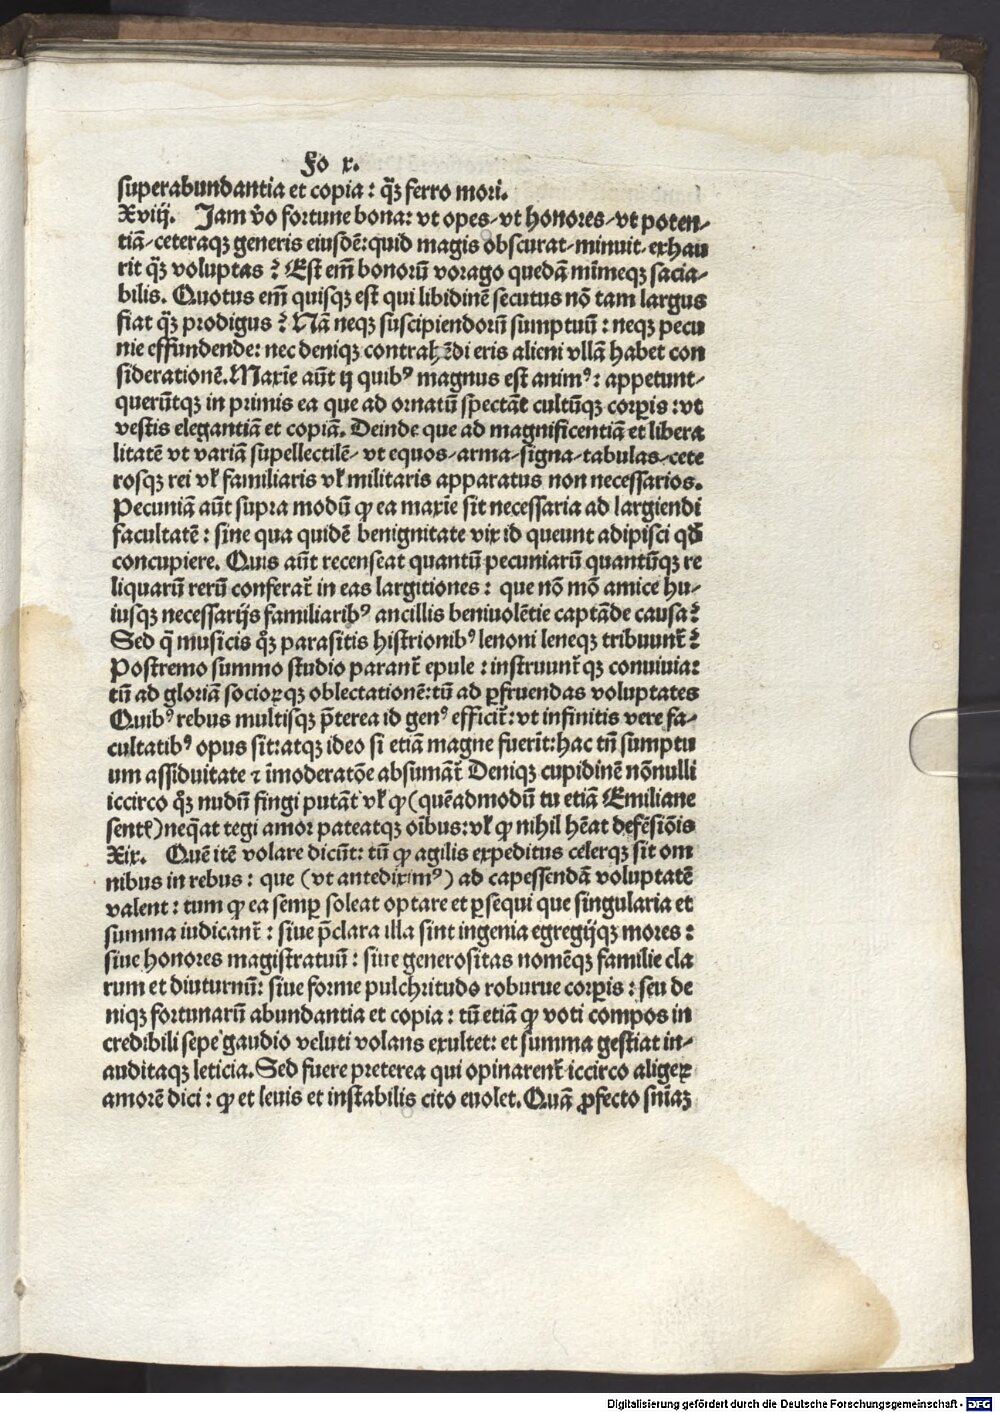 Fo x.
superabundantia et copia: q̃ꝫ ferro mori.
Xviij. Jam v̉o fortune bona: vt opes/vt honores/vt poten/
tiā/ceteraqꝫ generis eiusdē: quid magis obscurat/minuit/exhau
rit q̃ꝫ voluptas? Est em̄ bonorū vorago quedā mīmeqꝫ sacia/
bilis. Quotus em̄ quisqꝫ est qui libidinē secutus nō tam largus
fiat q̃ꝫ prodigus? Nā neqꝫ suscipiendorū sumptuū: neqꝫ pecu
nie effundende: nec deniqꝫ contrahēdi eris alieni vllā habet con
siderationē. Maxīe aūt ij quibꝰ magnus est animꝰ: appetunt/
querūtqꝫ in primis ea que ad ornatū spectāt cultūqꝫ corꝑis: vt
vestis elegantiā et copiā. Deinde que ad magnificentiā et libera
litatē vt variā supellectilē/vt equos/arma/signa/tabulas/cete
rosqꝫ rei vł familiaris vł militaris apparatus non necessarios.
Pecuniā aūt supra modū ꝙ ea maxīe sit necessaria ad largiendi
facultatē: sine qua quidē benignitate vix id queunt adipisci qđ
concupiere. Quis aūt recenseat quantū pecuniarū quantūqꝫ re
liquarū rerū conferat̄ in eas largitiones: que nō mō amice hu/
iusqꝫ necessarijs familiaribꝰ ancillis beniuolētie captāde causa?
Sed q̄ musicis q̃ꝫ parasitis histrionibꝰ lenoni leneqꝫ tribuunt̄?
Postremo summo studio parant̄ epule: instruunt̄ qꝫ conuiuia:
tū ad gloriā socioꝝqꝫ oblectationē: tū ad ꝑfruendas voluptates
Quibꝰ rebus multisqꝫ p̄terea id genꝰ efficit̄: vt infinitis vere fa/
cultatibꝰ opus sit: atqꝫ ideo si etiā magne fuerīt: hac tn̄ sumptu
um assiduitate ⁊ īmoderatōe absumāt̄ Deniqꝫ cupidinē nōnulli
iccirco q̃ꝫ nudū fingi putāt vł ꝙ (quēadmodū tu etiā Emiliane
sentꝭ) neq̄at tegi amor pateatqꝫ oībus: vł ꝙ nihil hēat defēsiōis
Xix. Quē itē volare dicūt: tū ꝙ agilis expeditus celerqꝫ sit om
nibus in rebus: que (vt antediximꝰ) ad capessendā voluptatē
valent: tum ꝙ ea semꝑ soleat optare et ꝑsequi que singularia et
summa iudicant̄: siue p̄clara illa sint ingenia egregijqꝫ mores:
siue honores magistratuū: siue generositas nomēqꝫ familie cla
rum et diuturnū: siue forme pulchritudo roburue corꝑis: seu de
niqꝫ fortunarū abundantia et copia: tū etiā ꝙ voti compos in
credibili sepe gaudio veluti volans exultet: et summa gestiat in/
auditaqꝫ leticia. Sed fuere preterea qui opinarent̄ iccirco aligeꝝ
amorē dici: ꝙ et leuis et instabilis cito euolet. Quā ꝓfecto sn̄iaꝫ
Digitalisierung gefördert durch die Deutsche Forschungsgemeinschaft - DFG